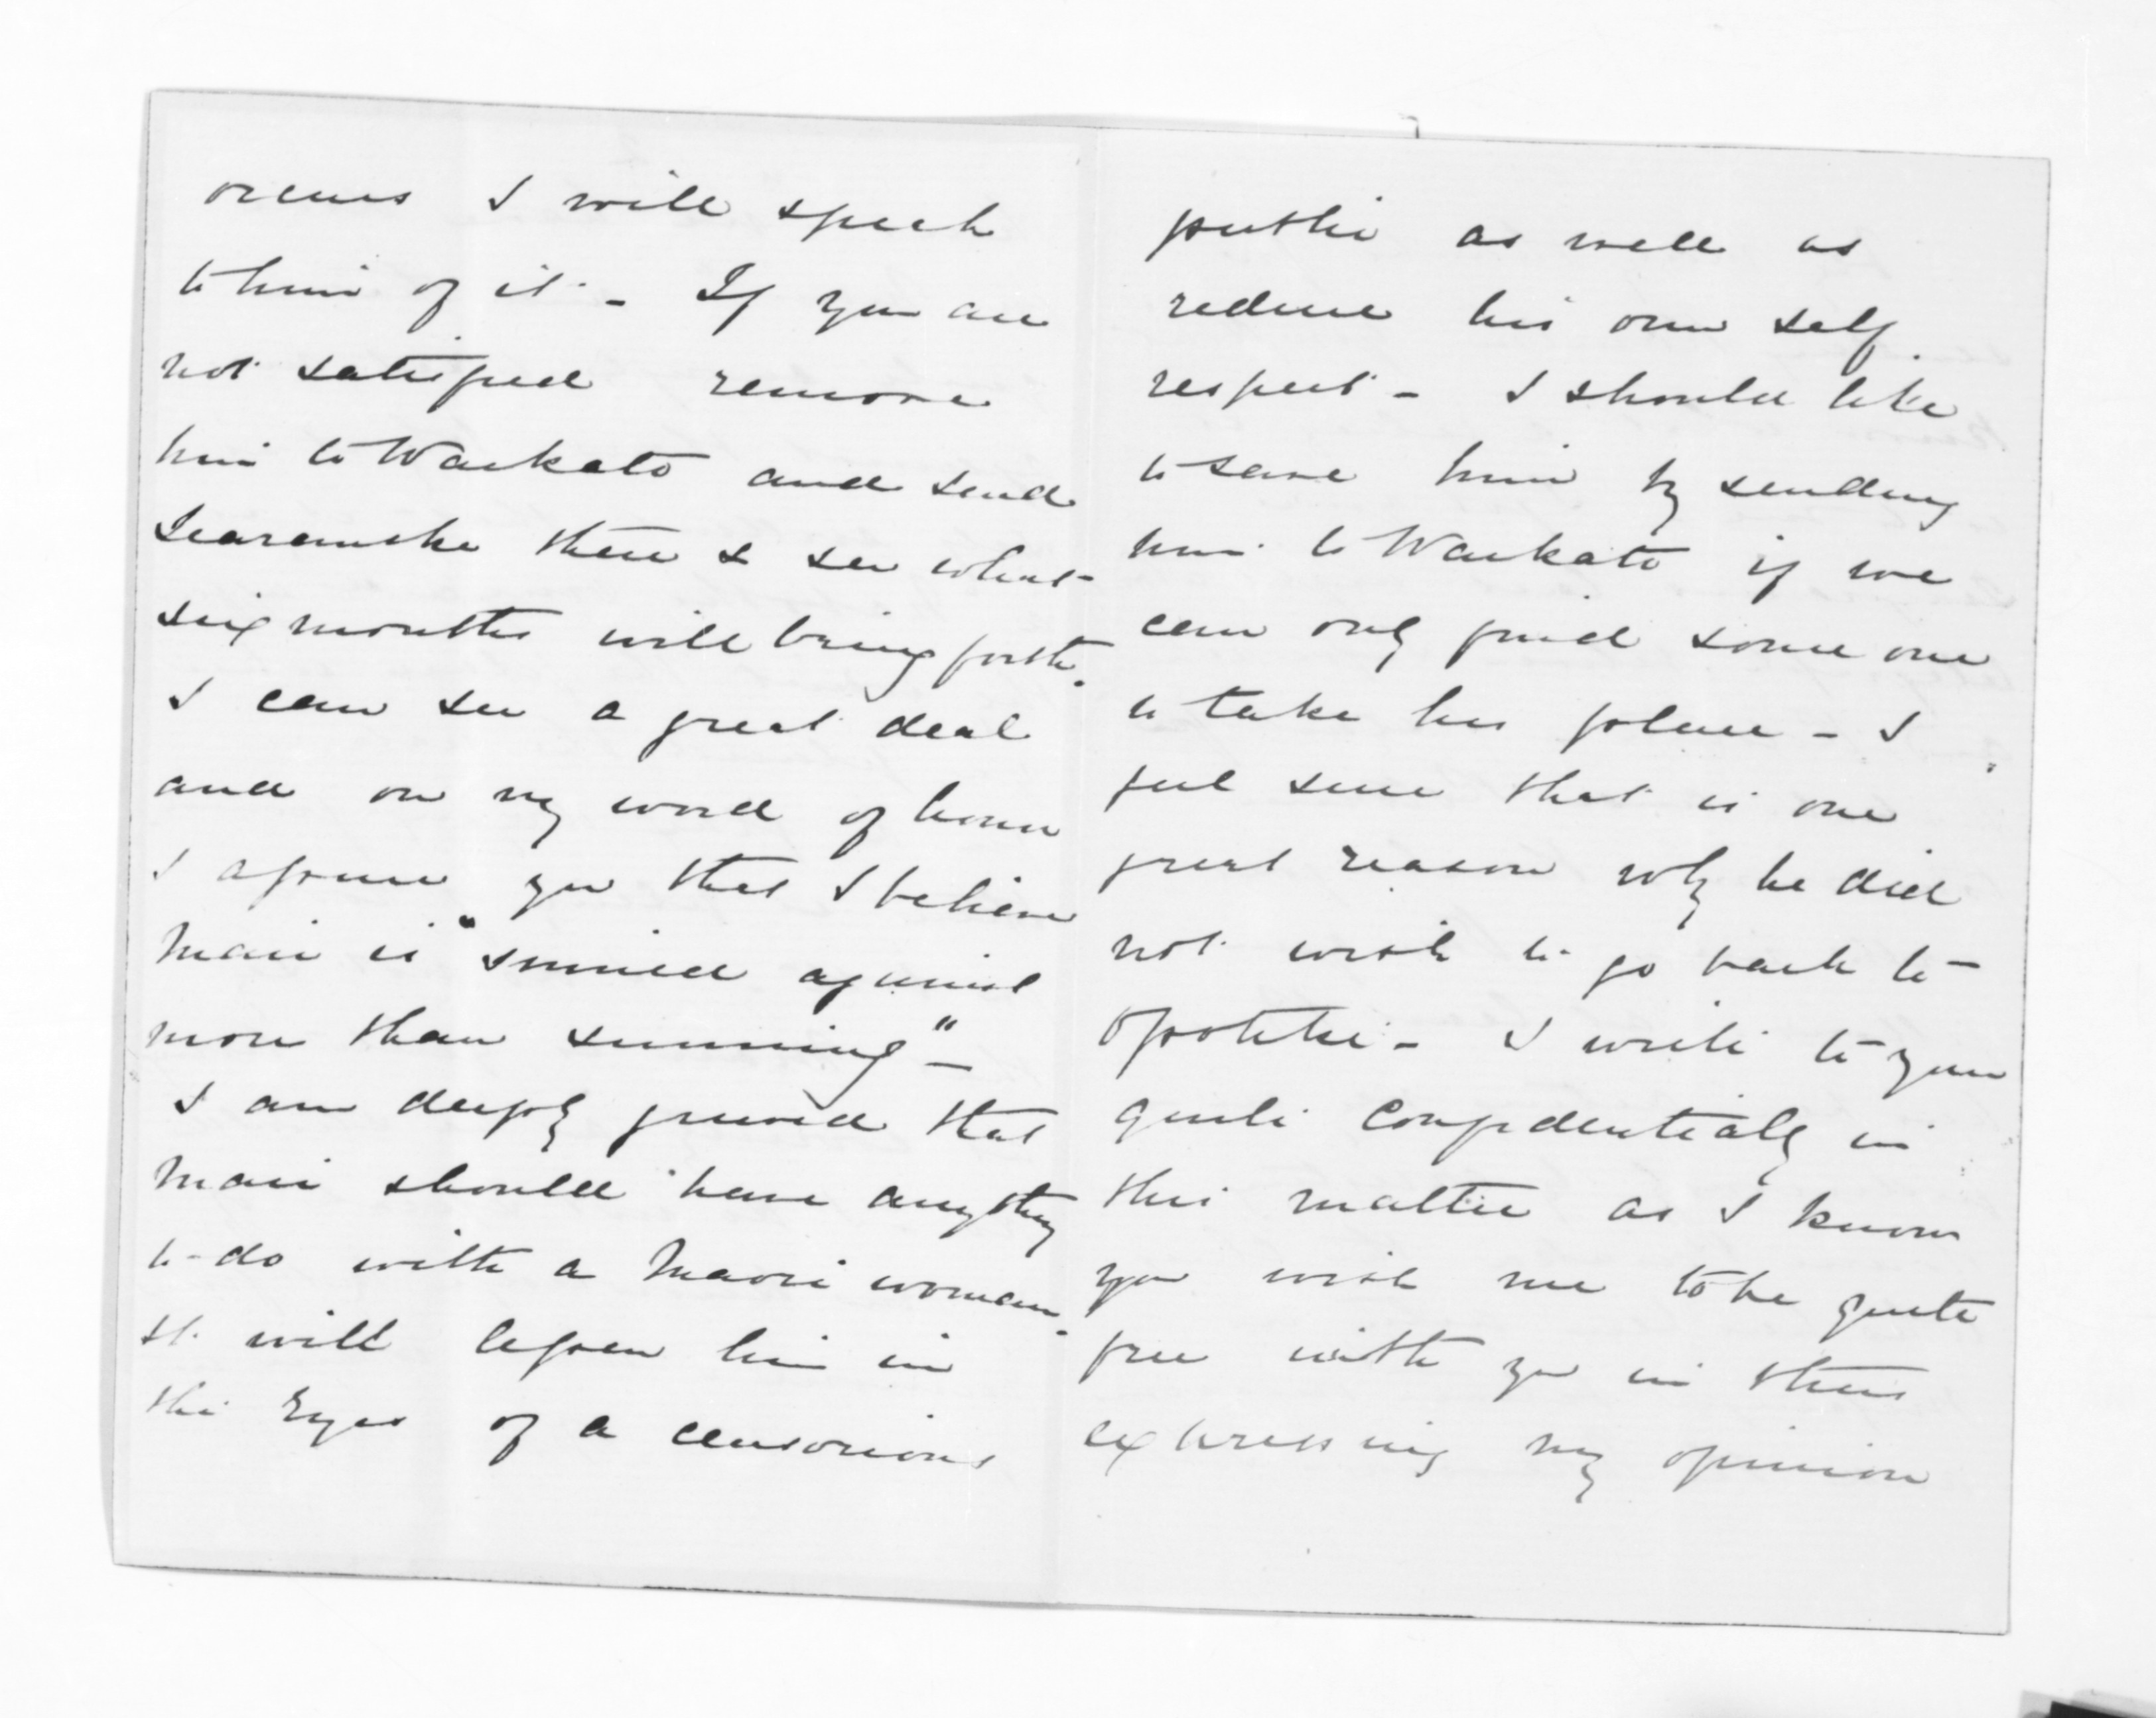 occurs I will speak
to him of it - If you are
not satisfied remove
him to Waikato and send
Searancke there & see what
six months will bring forth.
I can see a great deal
and on my word of honor
I assure you that I believe
Mair is "sinned against
more than sinning" -
I am deeply grieved that
Mair should have anything
to do with a Maori woman.
It will lessen him in
the Eyes of a censorious
public as well as
reduce his own self
respect - I should like
to save him by sending
him to Waikato if we
can only find some one
to take his place - I
feel sure that is one
great reason why he did
not wish to go back to
Opotiki - I write to you
quite confidentially in
this matter as I know
you wish me to be quite
free with you in thus
expressing my opinion